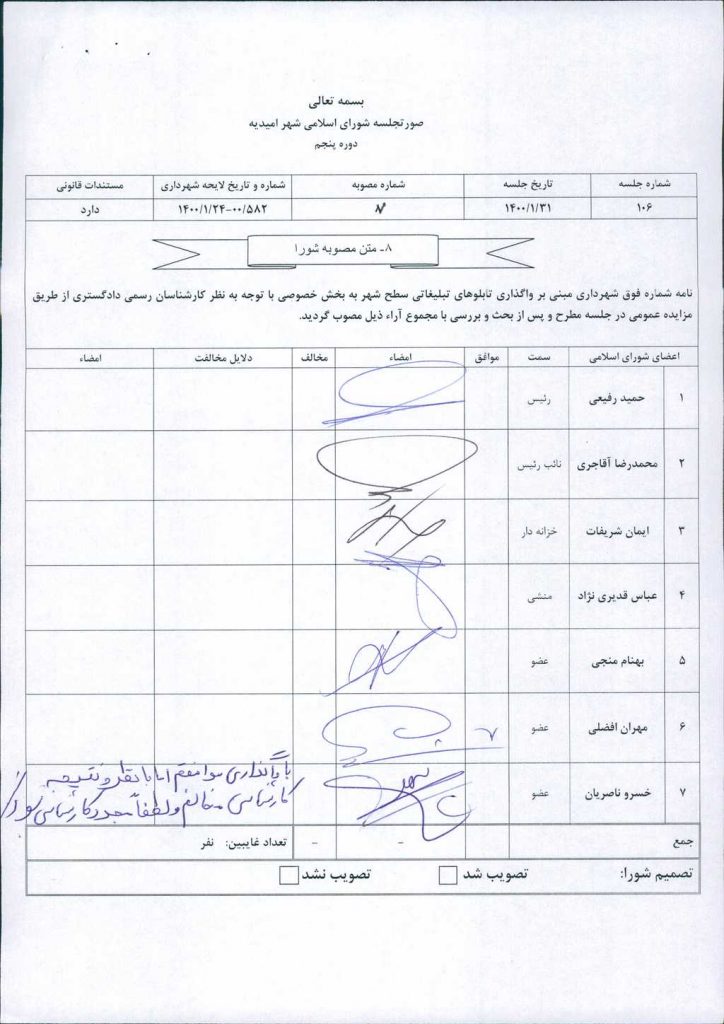 بسمه تعالی
صورتجلسه شورای اسلامی شهر امیدیه
دوره پنجم
شماره جلسه تاریخ جلسه شماره مصوبه شماره و تاریخ لایحه شهرداری مستندات قانونی
۱۰۶ ۱۴۰۰/۱/۳۱ ۱۴۰۰/۱/۲۴-۰۰/۵۸۲ دارد
۸- متن مصوبه شورا
نامه شماره فوق شهرداری مبنی بر واگذاری تابلوهای تبلیغاتی سطح شهر به بخش خصوصی با توجه به نظر کارشناسان رسمی دادگستری از طریق
مزایده عمومی در جلسه مطرح و پس از بحث و بررسی با مجموع آراء ذیل مصوب گردید.
اعضای شورای اسلامی سمت موافق امضاء مخالف دلایل مخالفت امضاء
۱ حمید رفیعی رئیس
۲ محمدرضا آقاجری نائب رئیس
۳ ایمان شریفات خزانه دار
۴ عباس قدیری نژاد منشی
۵ بهنام منجی عضو
۶ مهران افضلی عضو
۷ خسرو ناصریان عضو
با واگذاری موافقم اما با نظر و نتیجه
کارشناسی مخالفم و لطفاً مجدد کارشناسی شود
جمع - - - تعداد غایبین: نفر
تصمیم شورا: تصویب شد تصویب نشد